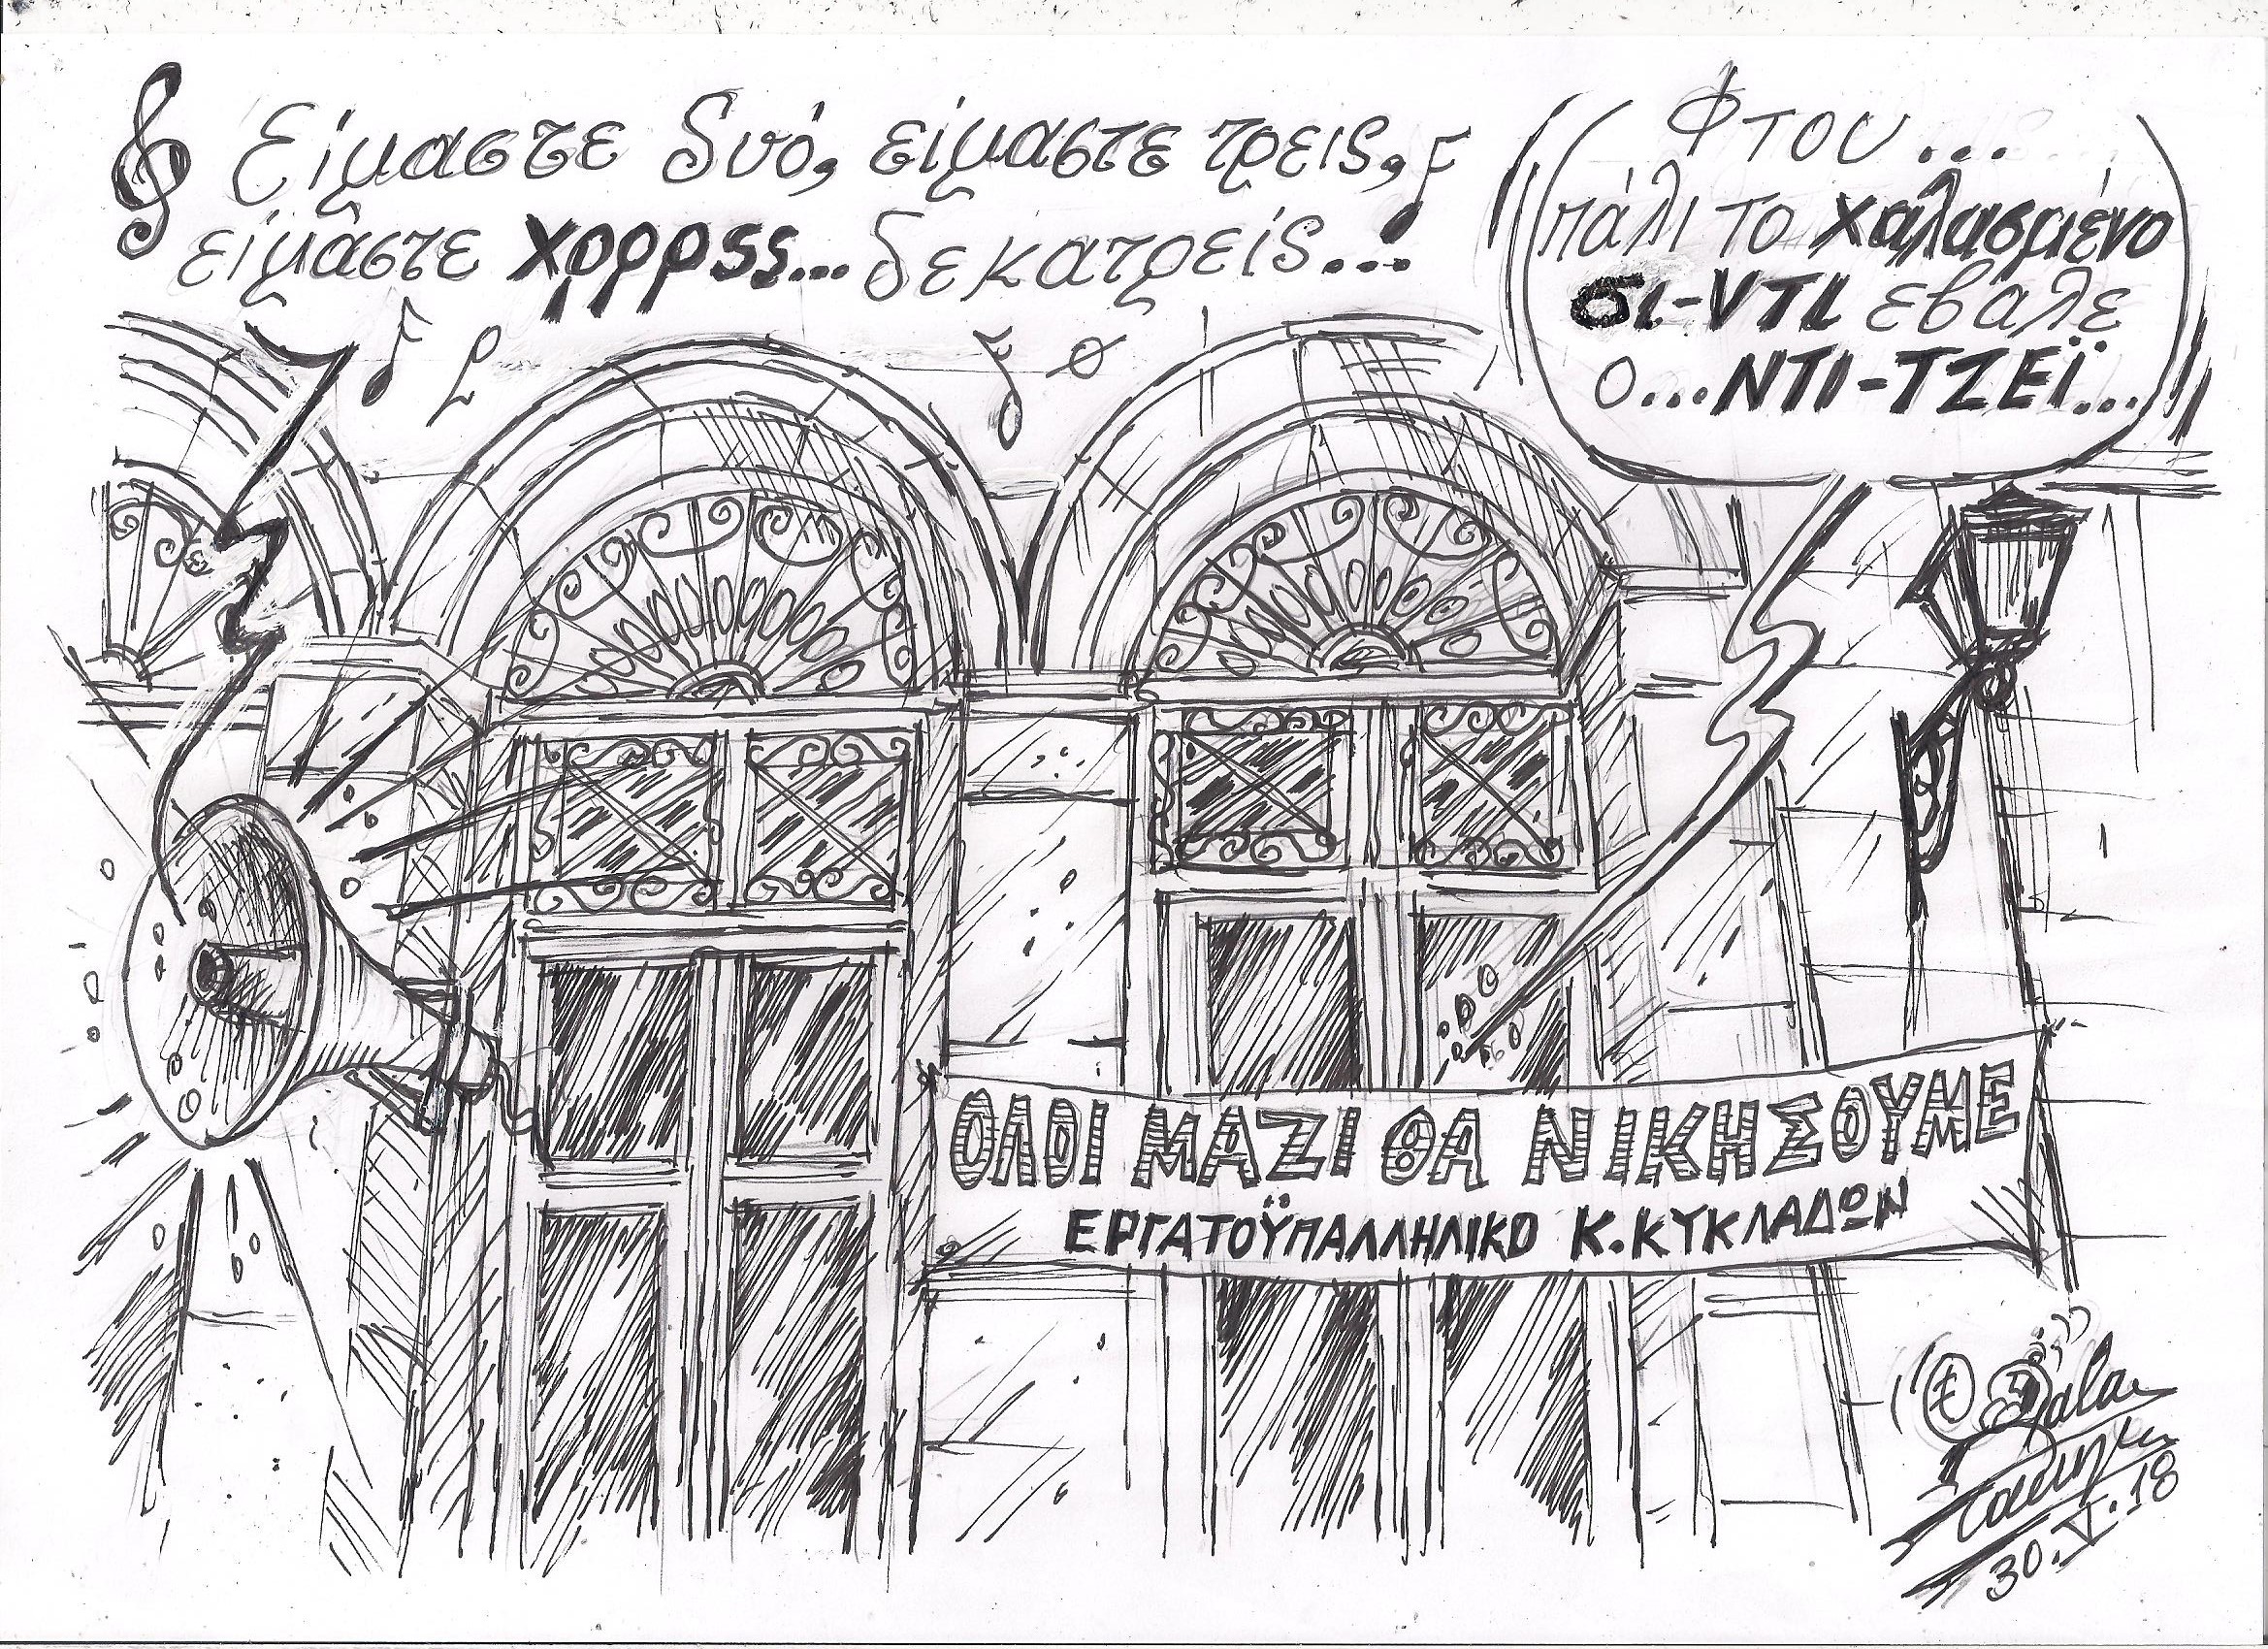 Είμαστε δυό, είμαστε τρεις,
είμαστε χρρρςς... δεκατρείς...
Φτου...
πάλι το χαλασμένο
σι-ντι έβαλε
ο...ΝΤΙ-ΤΖΕΪ...
ΟΛΟΙ ΜΑΖΙ ΘΑ ΝΙΚΗΣΟΥΜΕ
ΕΡΓΑΤΟΫΠΑΛΛΗΛΙΚΟ Κ.ΚΥΚΛΑΔΩΝ
30.V.18